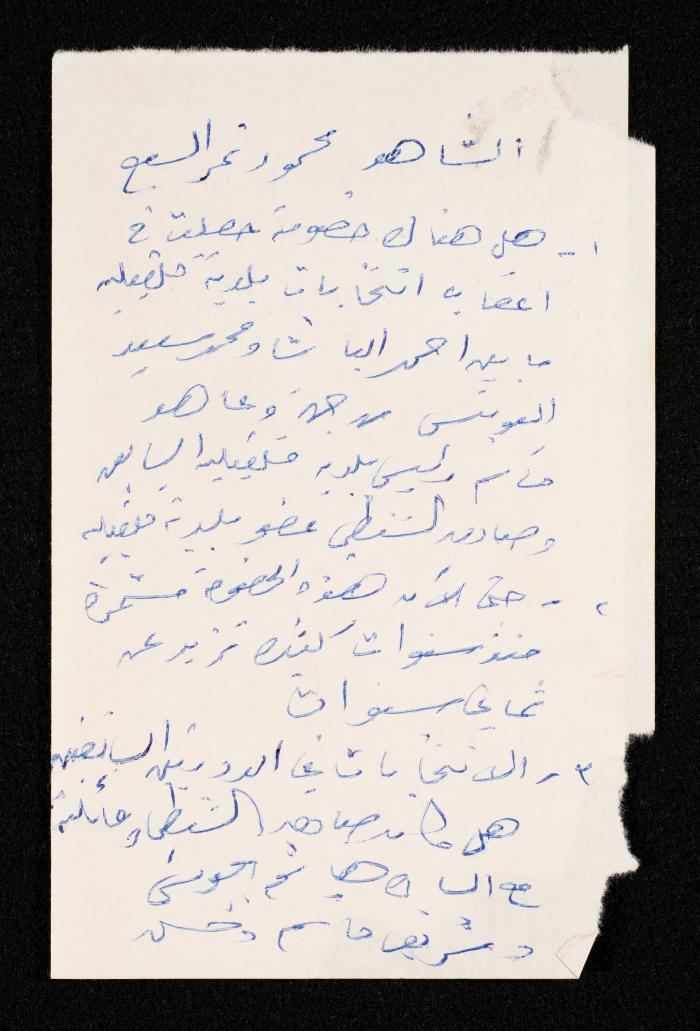 الشاهد محمود نمر السبع
١- هل هناك خصومة حصلت في
اعقاب انتخابات بلدية قلقيلية
ما بين احمد الباشا ومحمد سعيد
من جهة و
قاسم رئيس بلدية قلقيلية السابق
وصادق الشنطي عضو بلدية قلقيلية
٢- حتى الآن هذه الخصومة مستمرة
منذ سنوات كثيرة تزيد عن
ثماني سنوات
٣- الانتخابات في الدورتين السابقتين
هل كان صادق الشنطي وعائلته
مع
وشريف قاسم